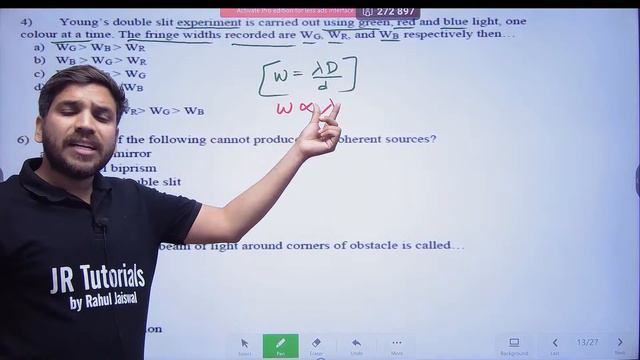 Activate pro edition for less ads interface
272 897
4) Young's double slit experiment is carried out using green, red and blue light, one
colour at a time. The fringe widths recorded are WG, WR, and WB respectively then…
a) WG> WB> WR
b) WB > WG> WR
c) > WG
d) WB
WR> WG> WB
[W = λD/d]
W ∝ λ
6) of the following cannot produce coherent sources?
mirror
biprism
double slit
beam of light around corners of obstacle is called…
JR Tutorials
by Rahul Jaiswal
Select
Pen
Eraser
Undo
More
Background
Previous
13/27
Next